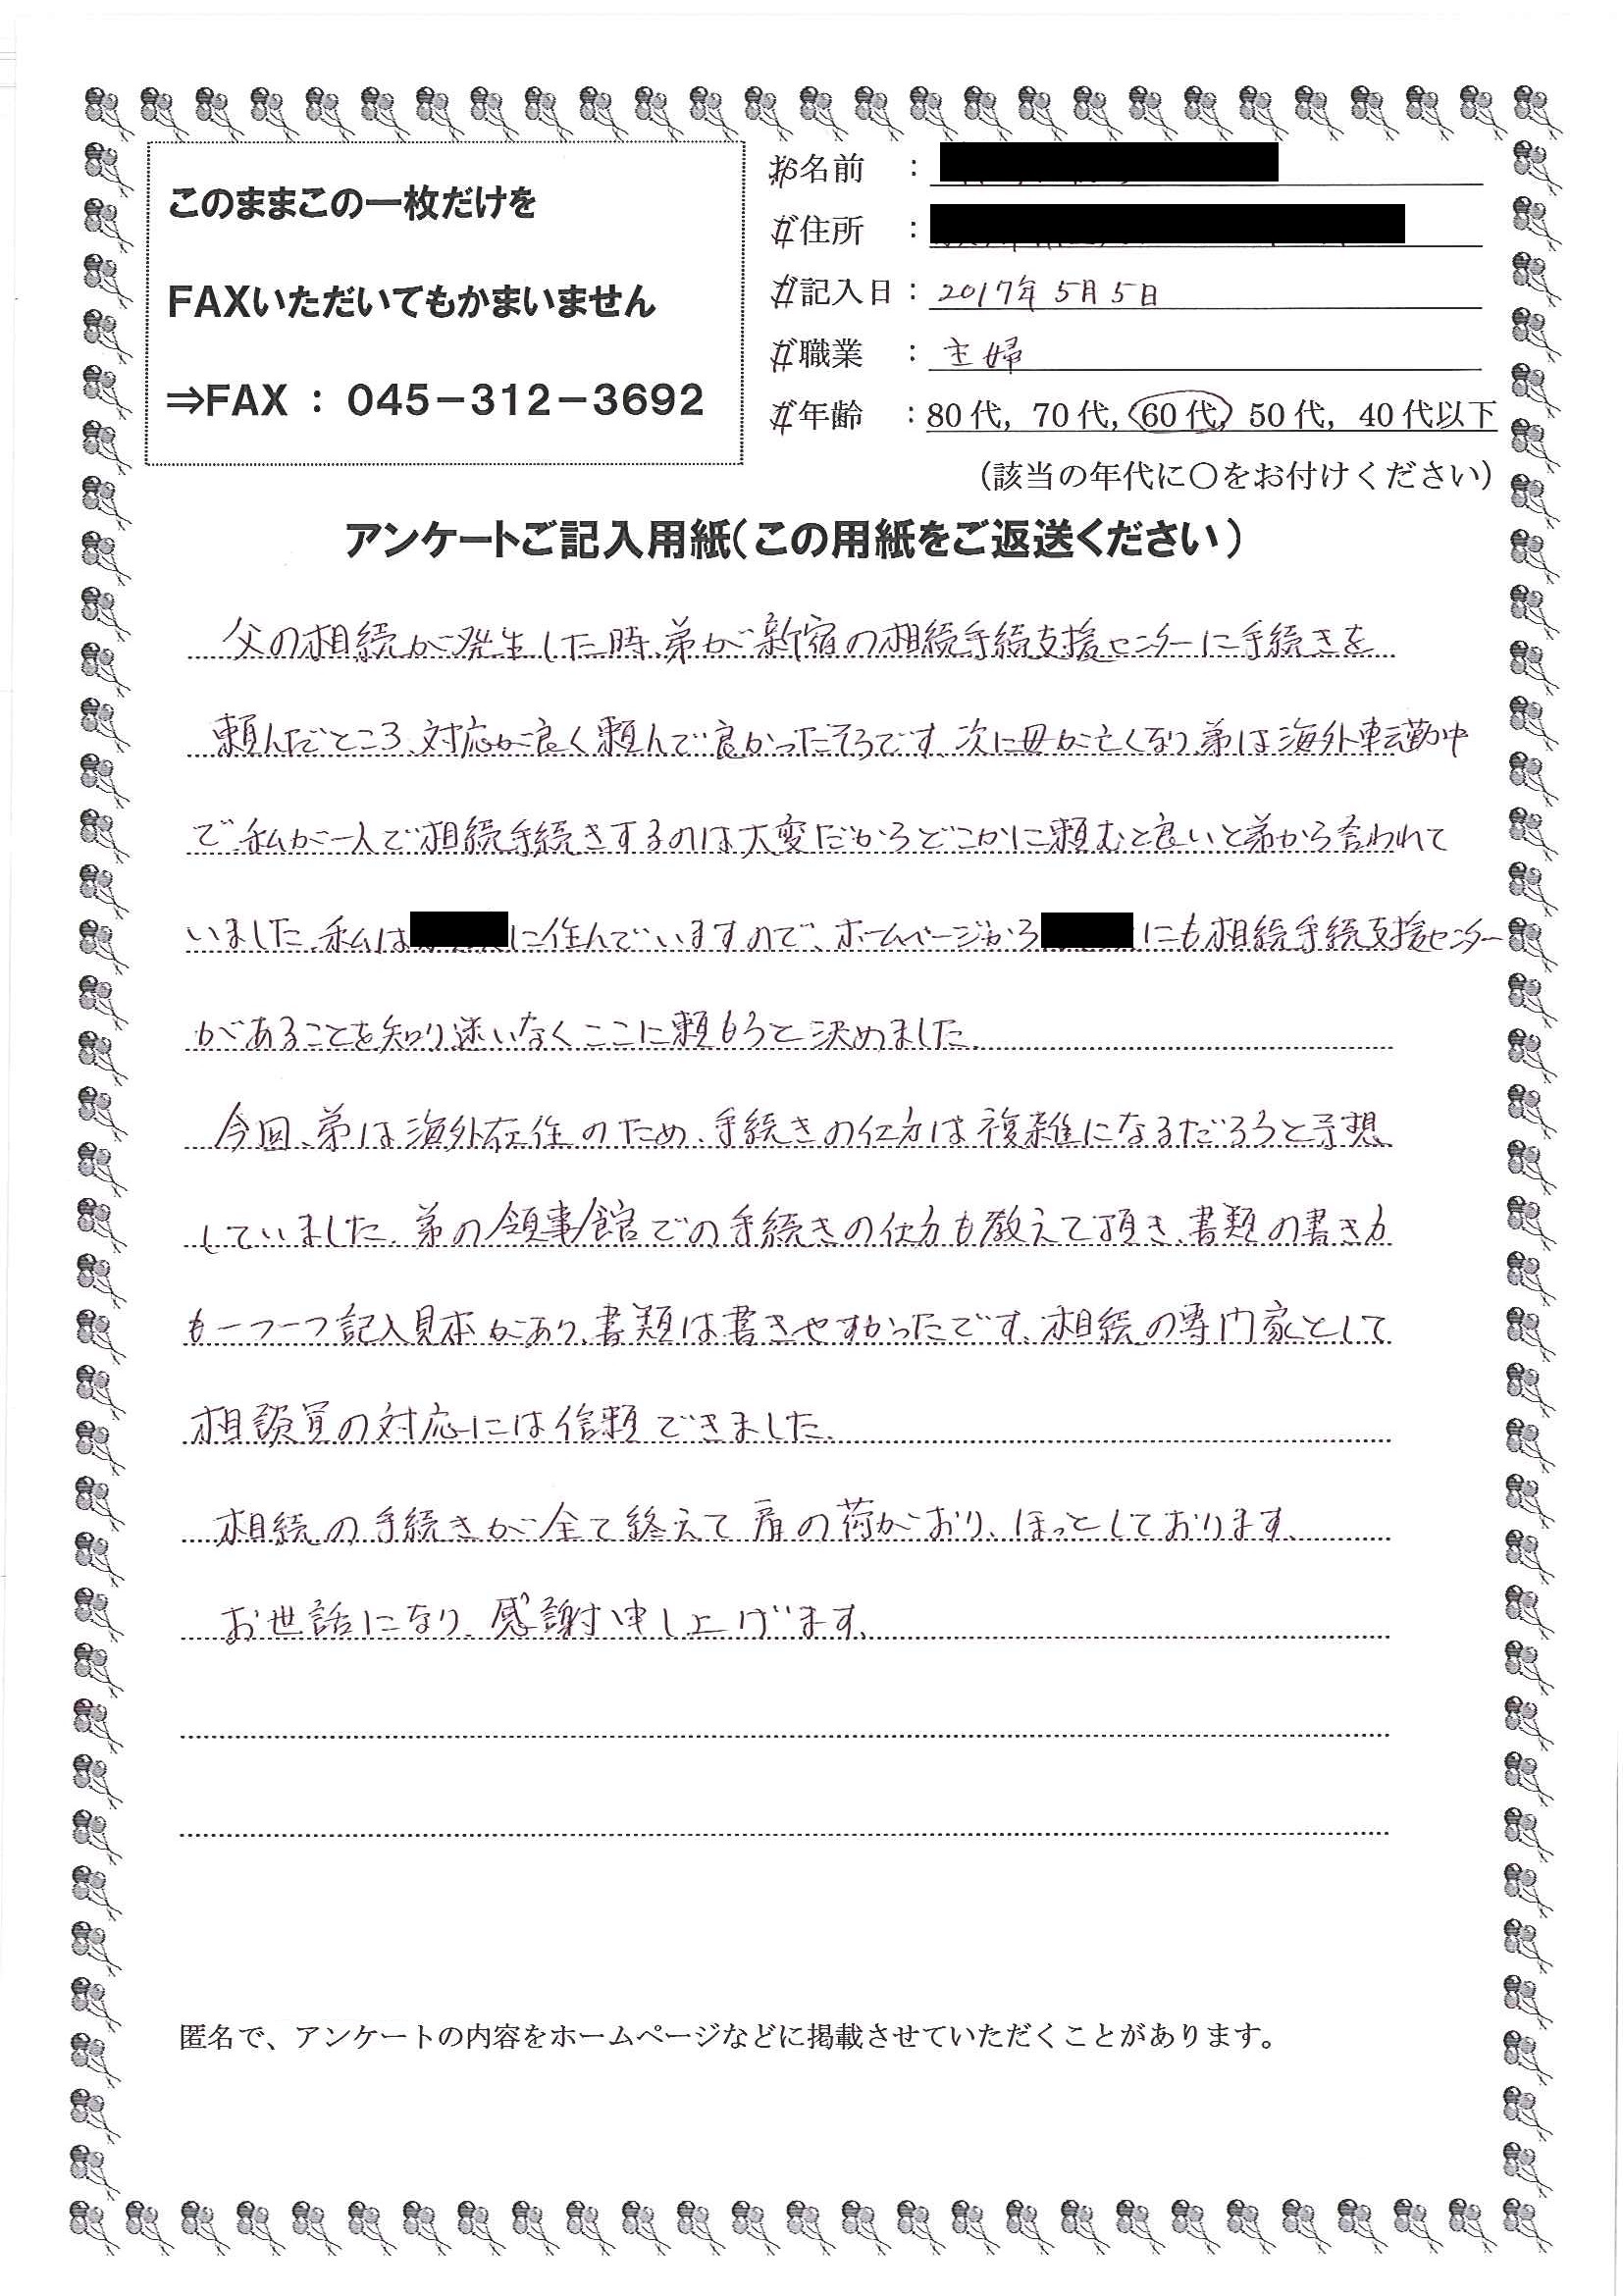 このままこの一枚だけを
FAXいただいてもかまいません
⇒FAX : 045-312-3692
お名前 :
ご住所 :
ご記入日 : 2017年5月5日
ご職業 : 主婦
ご年齢 : 80代, 70代, 60代, 50代, 40代以下
(該当の年代に○をお付けください)
アンケートご記入用紙(この用紙をご返送ください)
父の相続が発生した時、弟が新宿の相続手続支援センターに手続きを
頼んだところ、対応が良く頼んで良かったそうです。次に母が亡くなり弟は海外転勤中
で私が一人で相続手続きするのは大変だからどこかに頼むと良いと弟から言われて
いました。私は に住んでいますので、ホームページから にも相続手続支援センター
があることを知り迷いなくここに頼もうと決めました。
今回、弟は海外在住のため、手続きの仕方は複雑になるだろうと予想
していました。弟の領事館での手続きの仕方も教えて頂き、書類の書き方
も一つ一つ記入見本があり、書類は書きやすかったです。相続の専門家として
相談員の対応には信頼できました。
相続の手続きが全て終えて肩の荷がおり、ほっとしております。
お世話になり、感謝申し上げます。
匿名で、アンケートの内容をホームページなどに掲載させていただくことがあります。